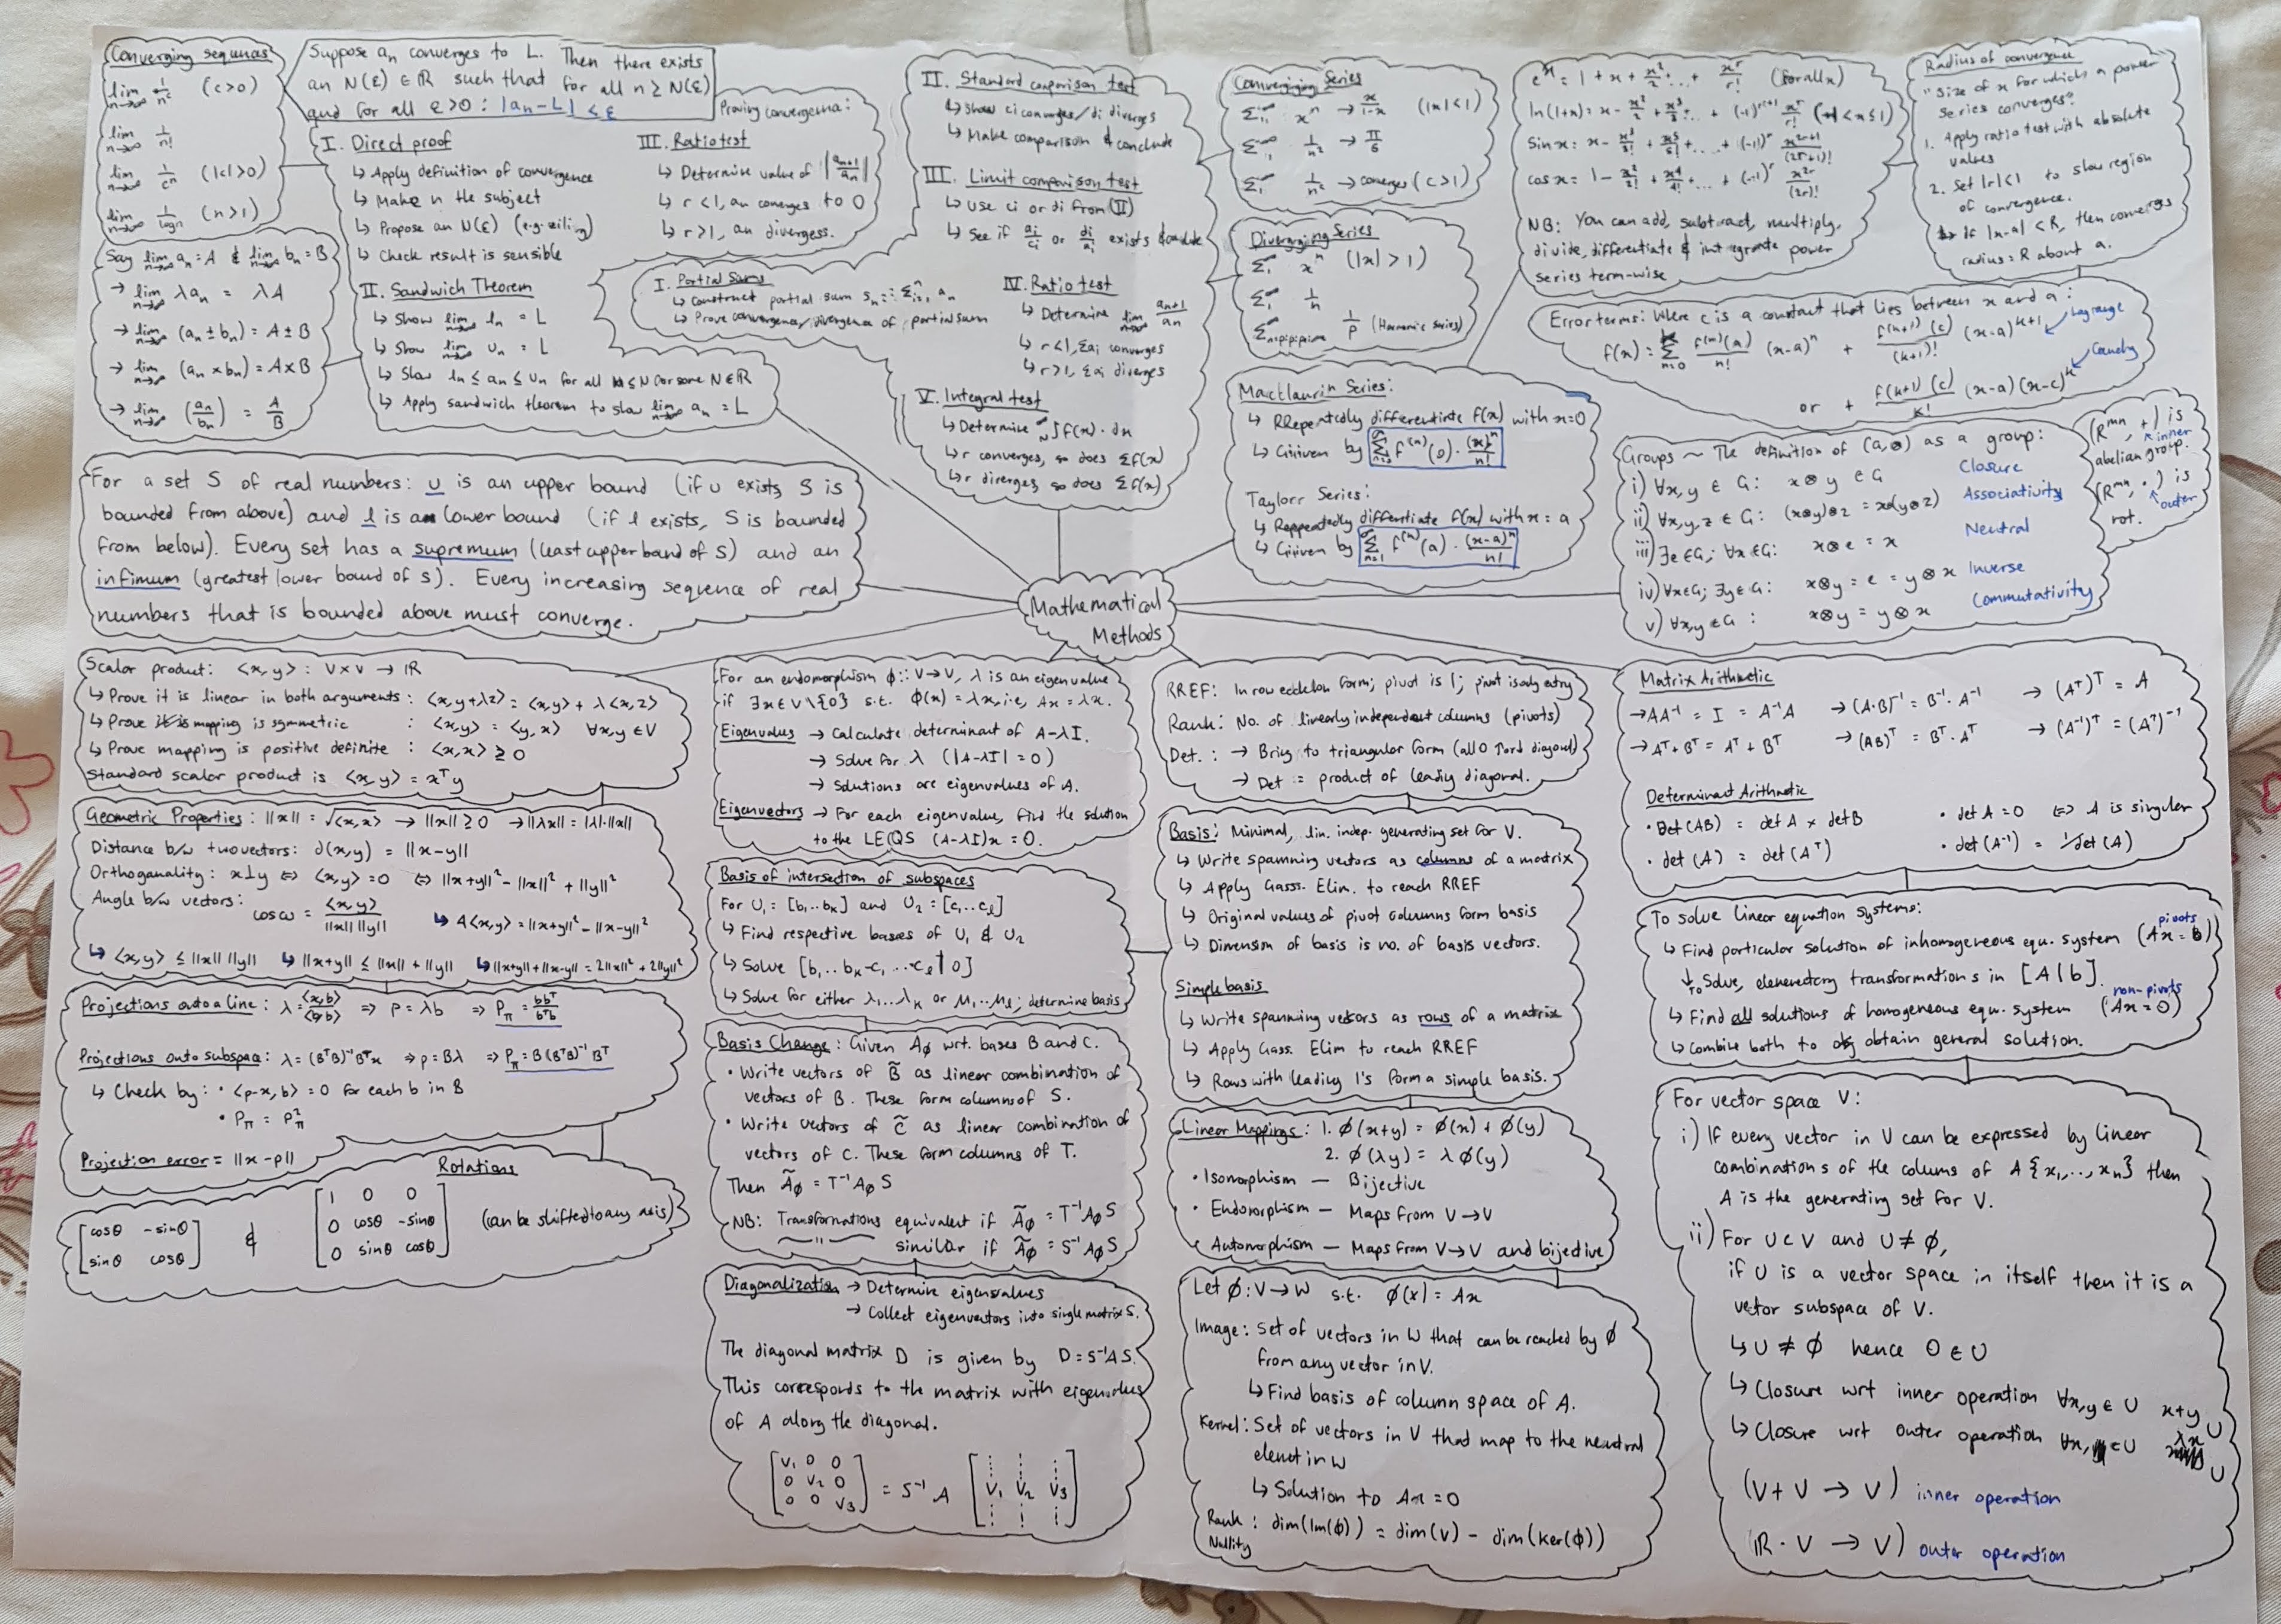 Converging sequences
lim n→∞ 1/n^c (c>0)
lim n→∞ 1/n!
lim n→∞ 1/c^n (|c|>0)
lim n→∞ 1/logn (n>1)
Say lim n→∞ an = A & lim n→∞ bn = B
→ lim n→∞ λan = λA
→ lim n→∞ (an ± bn) = A ± B
→ lim n→∞ (an × bn) = A×B
→ lim n→∞ (an/bn) = A/B
Suppose an converges to L. Then there exists
an N(ε) ∈ ℝ such that for all n ≥ N(ε)
and for all ε>0 : |an-L| < ε
Proving convergence:
I. Direct proof
↳ Apply definition of convergence
↳ Make n the subject
↳ Propose an N(ε) (e.g. ceiling)
↳ Check result is sensible
II. Sandwich Theorem
↳ Show lim n→∞ ln = L
↳ Show lim n→∞ un = L
↳ Show ln ≤ an ≤ un for all N for some N∈ℝ
↳ Apply sandwich theorem to show lim n→∞ an = L
III. Ratio test
↳ Determine value of |an+1/an|
↳ r<1, an converges to 0
↳ r>1, an diverges.
I. Partial Sums
↳ Construct partial sum sn = Σ an
↳ Prove convergence/divergence of partial sum
II. Standard comparison test
↳ Show ci converges/di diverges
↳ Make comparison & conclude
III. Limit comparison test
↳ Use ci or di from (II)
↳ See if ai/ci or di/ai exists & conclude
IV. Ratio test
↳ Determine lim n→∞ an+1/an
↳ r<1, Σai converges
↳ r>1, Σai diverges
V. Integral test
↳ Determine N∫∞ f(x)·dx
↳ r converges, so does Σf(x)
↳ r diverges, so does Σf(x)
Converging Series
Σ∞1 x^n → x/1-x (|x|<1)
Σ∞1 1/n² → π/6
Σ∞1 1/n^c → converges (c>1)
Diverging Series
Σ∞1 x^n (|x|>1)
Σ∞1 1/n
Σ 1/p (Harmonic Series)
Macklaurin Series:
↳ Repeatedly differentiate f(x) with x=0
↳ Given by Σ f^(n)(0)·(x)^n/n!
Taylorr Series:
↳ Reppeatedly differentiate f(x) with x = a
↳ Given by Σ f^(n)(a)·(x-a)^n/n!
e^x = 1 + x + x²/2 ... + x^r/r! (for all x)
ln(1+x) = x - x²/2 + x³/3 ... + (-1)^r+1 x^r/r! (-1 < x ≤ 1)
sinx = x - x³/3! + x⁵/5! + ... + (-1)^r x^2r+1/(2r+1)!
cosx = 1 - x²/2! + x⁴/4! + ... + (-1)^r x^2r/(2r)!
NB: You can add, subtract, multiply,
divide, differentiate & integrate power
series term-wise
Radius of convergence
"size of x for which a power
series converges".
1. Apply ratio test with absolute
values
2. Set |r|<1 to show region
of convergence.
↳ If |x-a| < R, then converges
radius = R about a.
Error terms: Where c is a constant that lies between x and a:
f(x) = Σ k n=0 f^(n)(a)/n! (x-a)^n + f^(k+1)(c)/(k+1)! (x-a)^k+1 Lagrange
or + f^(k+1)(c)/k! (x-a)(x-c)^k Cauchy
Groups ~ The definition of (G,⊗) as a group:
i) ∀x,y ∈ G: x⊗y ∈ G Closure
ii) ∀x,y,z ∈ G: (x⊗y)⊗z = x⊗(y⊗z) Associativity
iii) ∃e∈G; ∀x∈G: x⊗e = x Neutral
iv) ∀x∈G; ∃y∈G: x⊗y = e = y⊗x Inverse
v) ∀x,y∈G : x⊗y = y⊗x Commutativity
(ℝ^mn, +) is
inner
abelian group.
(ℝ^mn, ·) is
outer
not.
For a set S of real numbers: u is an upper bound (if u exists, S is
bounded from above) and l is an lower bound (if l exists, S is bounded
from below). Every set has a supremum (least upper band of S) and an
infimum (greatest lower bound of S). Every increasing sequence of real
numbers that is bounded above must converge.
Mathematical
Methods
Scalar product: <x,y> : V×V → ℝ
↳ Prove it is linear in both arguments : <x,y+λz> = <x,y> + λ<x,z>
↳ Prove mapping is symmetric : <x,y> = <y,x> ∀x,y ∈V
↳ Prove mapping is positive definite : <x,x> ≥ 0
Standard scalar product is <x,y> = x^T y
Geometric Properties: ||x|| = √<x,x> → ||x|| ≥ 0 → ||λx|| = |λ|·||x||
Distance b/w two vectors: d(x,y) = ||x-y||
Orthoganality: x⊥y ⇔ <x,y> = 0 ⇔ ||x+y||² - ||x||² + ||y||²
Angle b/w vectors:
cosω = <x,y>/||x|| ||y|| ↳ 4<x,y> = ||x+y||² - ||x-y||²
↳ <x,y> ≤ ||x|| ||y|| ↳ ||x+y|| ≤ ||x|| + ||y|| ↳ ||x+y|| + ||x-y|| = 2||x||² + 2||y||²
Projections onto a line: λ = <x,b>/<b,b> ⇒ p = λb ⇒ Pπ = bb^T/b^Tb
Projections onto subspace: λ = (B^TB)^-1 B^Tx ⇒ p = Bλ ⇒ Pπ = B(B^TB)^-1 B^T
↳ Check by: • <p-x, b> = 0 for each b in B
• Pπ = P²π
Projection error = ||x-p||
Rotations
[cosθ -sinθ
sinθ cosθ] & [1 0 0
0 cosθ -sinθ
0 sinθ cosθ] (can be shifted to any axis)
For an endomorphism φ: V→V, λ is an eigenvalue
if ∃x∈V\{0} s.t. φ(x) = λx, i.e, Ax = λx.
Eigenvalues → Calculate determinant of A-λI.
→ Solve for λ (|A-λI| = 0)
→ Solutions are eigenvalues of A.
Eigenvectors → For each eigenvalue, find the solution
to the LEQS (A-λI)x = 0.
Basis of intersection of subspaces
For U1 = [b1..bk] and U2 = [c1..cl]
↳ Find respective bases of U1 & U2
↳ Solve [b1..bk -c1 ...cl | 0]
↳ Solve for either λ1...λk or μ1..μl; determine basis
Basis Change: Given Aφ wrt. bases B and C.
• Write vectors of B̃ as linear combination of
vectors of B. These form columns of S.
• Write vectors of C̃ as linear combination of
vectors of C. These form columns of T.
Then Ãφ = T^-1 Aφ S
NB: Transformations equivalent if Ãφ = T^-1 Aφ S
" similar if Ãφ = S^-1 Aφ S
Diagonalization → Determine eigenvalues
→ Collect eigenvectors into single matrix S.
The diagonal matrix D is given by D = S^-1 A S.
This corresponds to the matrix with eigenvalues
of A along the diagonal.
[v1 0 0
0 v2 0
0 0 v3] = S^-1 A [v1 v2 v3]
RREF: In row echelon form; pivot is 1; pivot is only entry
Rank: No. of linearly independent columns (pivots)
Det. : → Bring to triangular form (all 0 diagonal)
→ Det := product of leading diagonal.
Basis: Minimal, lin. indep. generating set for V.
↳ Write spanning vectors as columns of a matrix
↳ Apply Gasss. Elim. to reach RREF
↳ Original values of pivot columns form basis
↳ Dimension of basis is no. of basis vectors.
Simple basis
↳ Write spanning vectors as rows of a matrix
↳ Apply Gass. Elim to reach RREF
↳ Rows with leading 1's form a simple basis.
Linear Mappings: 1. φ(x+y) = φ(x) + φ(y)
2. φ(λy) = λφ(y)
• Isomorphism — Bijective
• Endomorphism — Maps from V→V
• Automorphism — Maps from V→V and bijective
Let φ: V→W s.t. φ(x) = Ax
Image: Set of vectors in W that can be reached by φ
from any vector in V.
↳ Find basis of column space of A.
Kernel: Set of vectors in V that map to the neutral
element in W
↳ Solution to Ax = 0
Rank : dim(Im(φ)) = dim(V) - dim(ker(φ))
Nullity
Matrix Arithmetic
→ AA^-1 = I = A^-1A → (A·B)^-1 = B^-1·A^-1 → (A^T)^T = A
→ A^T + B^T = A^T + B^T → (AB)^T = B^T·A^T → (A^-1)^T = (A^T)^-1
Determinant Arithmetic
• Det(AB) = detA × detB • detA = 0 ⇔ A is singular
• det(A) = det(A^T) • det(A^-1) = 1/det(A)
To solve linear equation systems:
pivots
↳ Find particular solution of inhomogeneous equ. system (Ax = b)
↳ To Solve, elementary transformations in [A|b].
non-pivots
↳ Find all solutions of homogeneous equ. system (Ax = 0)
↳ Combine both to obtain general solution.
For vector space V:
i) If every vector in V can be expressed by linear
combinations of the colums of A {x1,..., xn} then
A is the generating set for V.
ii) For U⊂V and U ≠ φ,
if U is a vector space in itself then it is a
vector subspace of V.
↳ U ≠ φ hence 0 ∈ U
↳ Closure wrt inner operation ∀x,y ∈ U x+y U
↳ Closure wrt outer operation ∀x, ∈ U λx U
(V + V → V) inner operation
(ℝ · V → V) outer operation